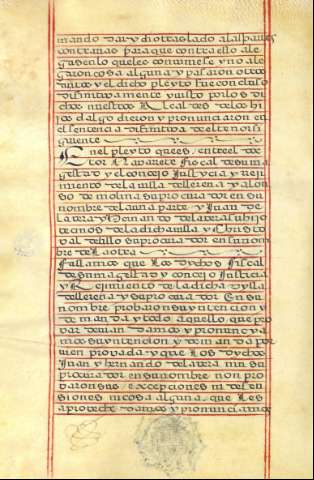 mando dar y dio traslado a las partes
contrarias para que contra ello ale
gasen lo que les conviniese y no ale
garon cosa alguna y pasaron otros
autos y el dicho pleyto fue concluso
difinitivamente y visto por los di
chos nuestros Alcaldes de los hi
jos dalgo dieron y pronunciaron en
el sentencia difinitiva del tenor si
guiente
En el pleyto que es entre el doc
tor Navarrete Fiscal de su ma
gestad y el concejo Justicia y Reji
miento de la villa de llerena y alon
so de molina su procurador en su
nombre de la una parte y Juan de
la tera y Hernando de la tera su hijo
vecinos de la dicha villa y Christo
val de billo su procurador en su nom
bre de la otra
Fallamos que Los dychos Fiscal
de su magestad y concejo Justicia
y Rejimiento de la dicha vylla
de llerena y su procurador En su
nombre probaron su yntencion y
demanda y todo aquello que pro
bar devian damos y pronuncya
mos su yntencion y demanda por
vien provada y que Los dychos
Juan y hernando de la tera nin su
procurador en su nombre non pro
baron sus excepciones ni defen
siones ni cosa alguna que Les
aproveche damos y pronunciamos